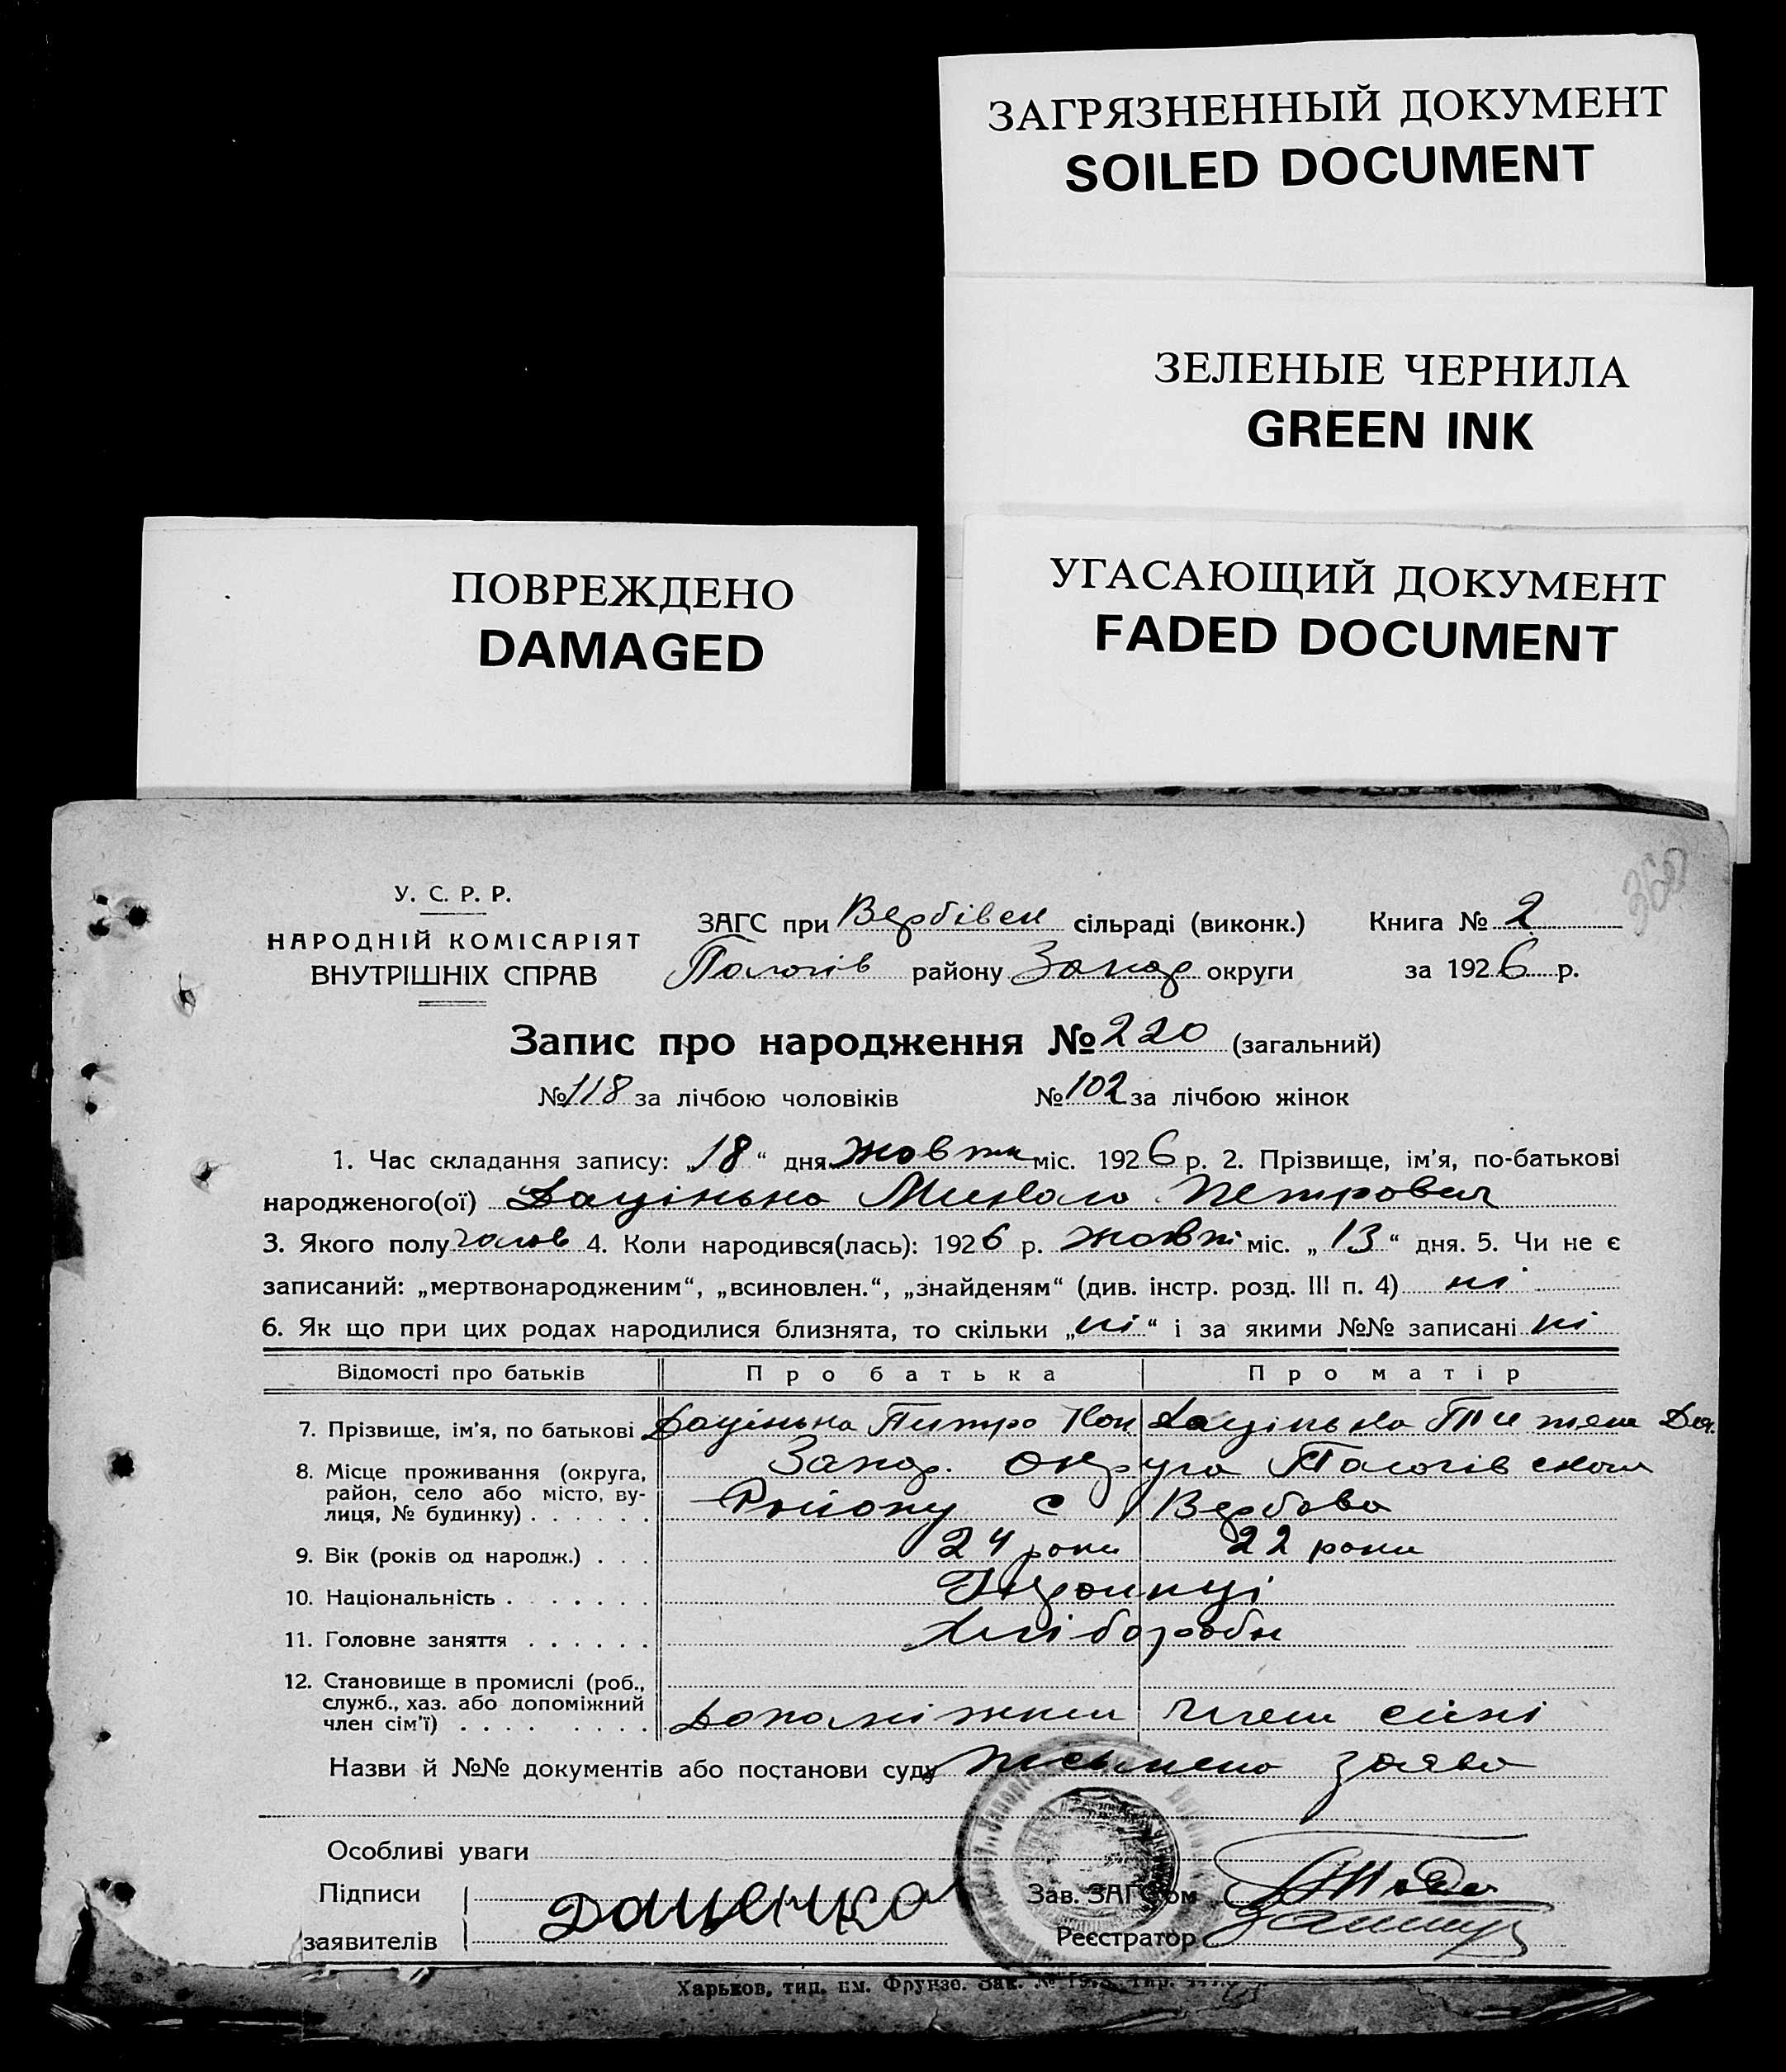 ЗАГРЯЗНЕННЫЙ ДОКУМЕНТ
SOILED DOCUMENT
ЗЕЛЕНЫЕ ЧЕРНИЛА
GREEN INK
ПОВРЕЖДЕНО
DAMAGED
УГАСАЮЩИЙ ДОКУМЕНТ
FADED DOCUMENT
360
У. С. Р. Р.
НАРОДНІЙ КОМІСАРІЯТ
ВНУТРІШНІХ СПРАВ
ЗАГС при Вербівск сільраді (виконк.) Книга № 2
Пологів району Запор округи за 1926 р.
Запис про народження № 220 (загальний)
№ 118 за лічбою чоловіків № 102 за лічбою жінок
1. Час складання запису: „18“ дня жовтня міс. 1926 р. 2. Прізвище, ім'я, по-батькові
народженого(ої) Дацінько Микола Петрович
3. Якого полу чолов 4. Коли народився(лась): 1926 р. жовтні міс. „13“ дня. 5. Чи не є
записаний: „мертвонародженим“, „всиновлен.“, „знайденям“ (див. інстр. розд. III п. 4) ні
6. Як що при цих родах народилися близнята, то скільки „ні“ і за якими №№ записані ні
Відомості про батьків Про батька Про матір
7. Прізвище, ім'я, по батькові Дацінько Питро Дацінько
8. Місце проживання (округа, район, село або місто, вулиця, № будинку) Запор. округа Пологівськом
Району с Вербова
9. Вік (років од народж.) 24 роки 22 роки
10. Національність Українці
11. Головне заняття Хлібороби
12. Становище в промислі (роб., служб., хаз. або допоміжний член сім'ї) Допоміжни члени сімї
Назви й №№ документів або постанови суду письмено заява
Особливі уваги
Підписи Даценко Зав. ЗАГСом
заявителів Реєстратор
Харьков, тип. им. Фрунзе. Зак. №